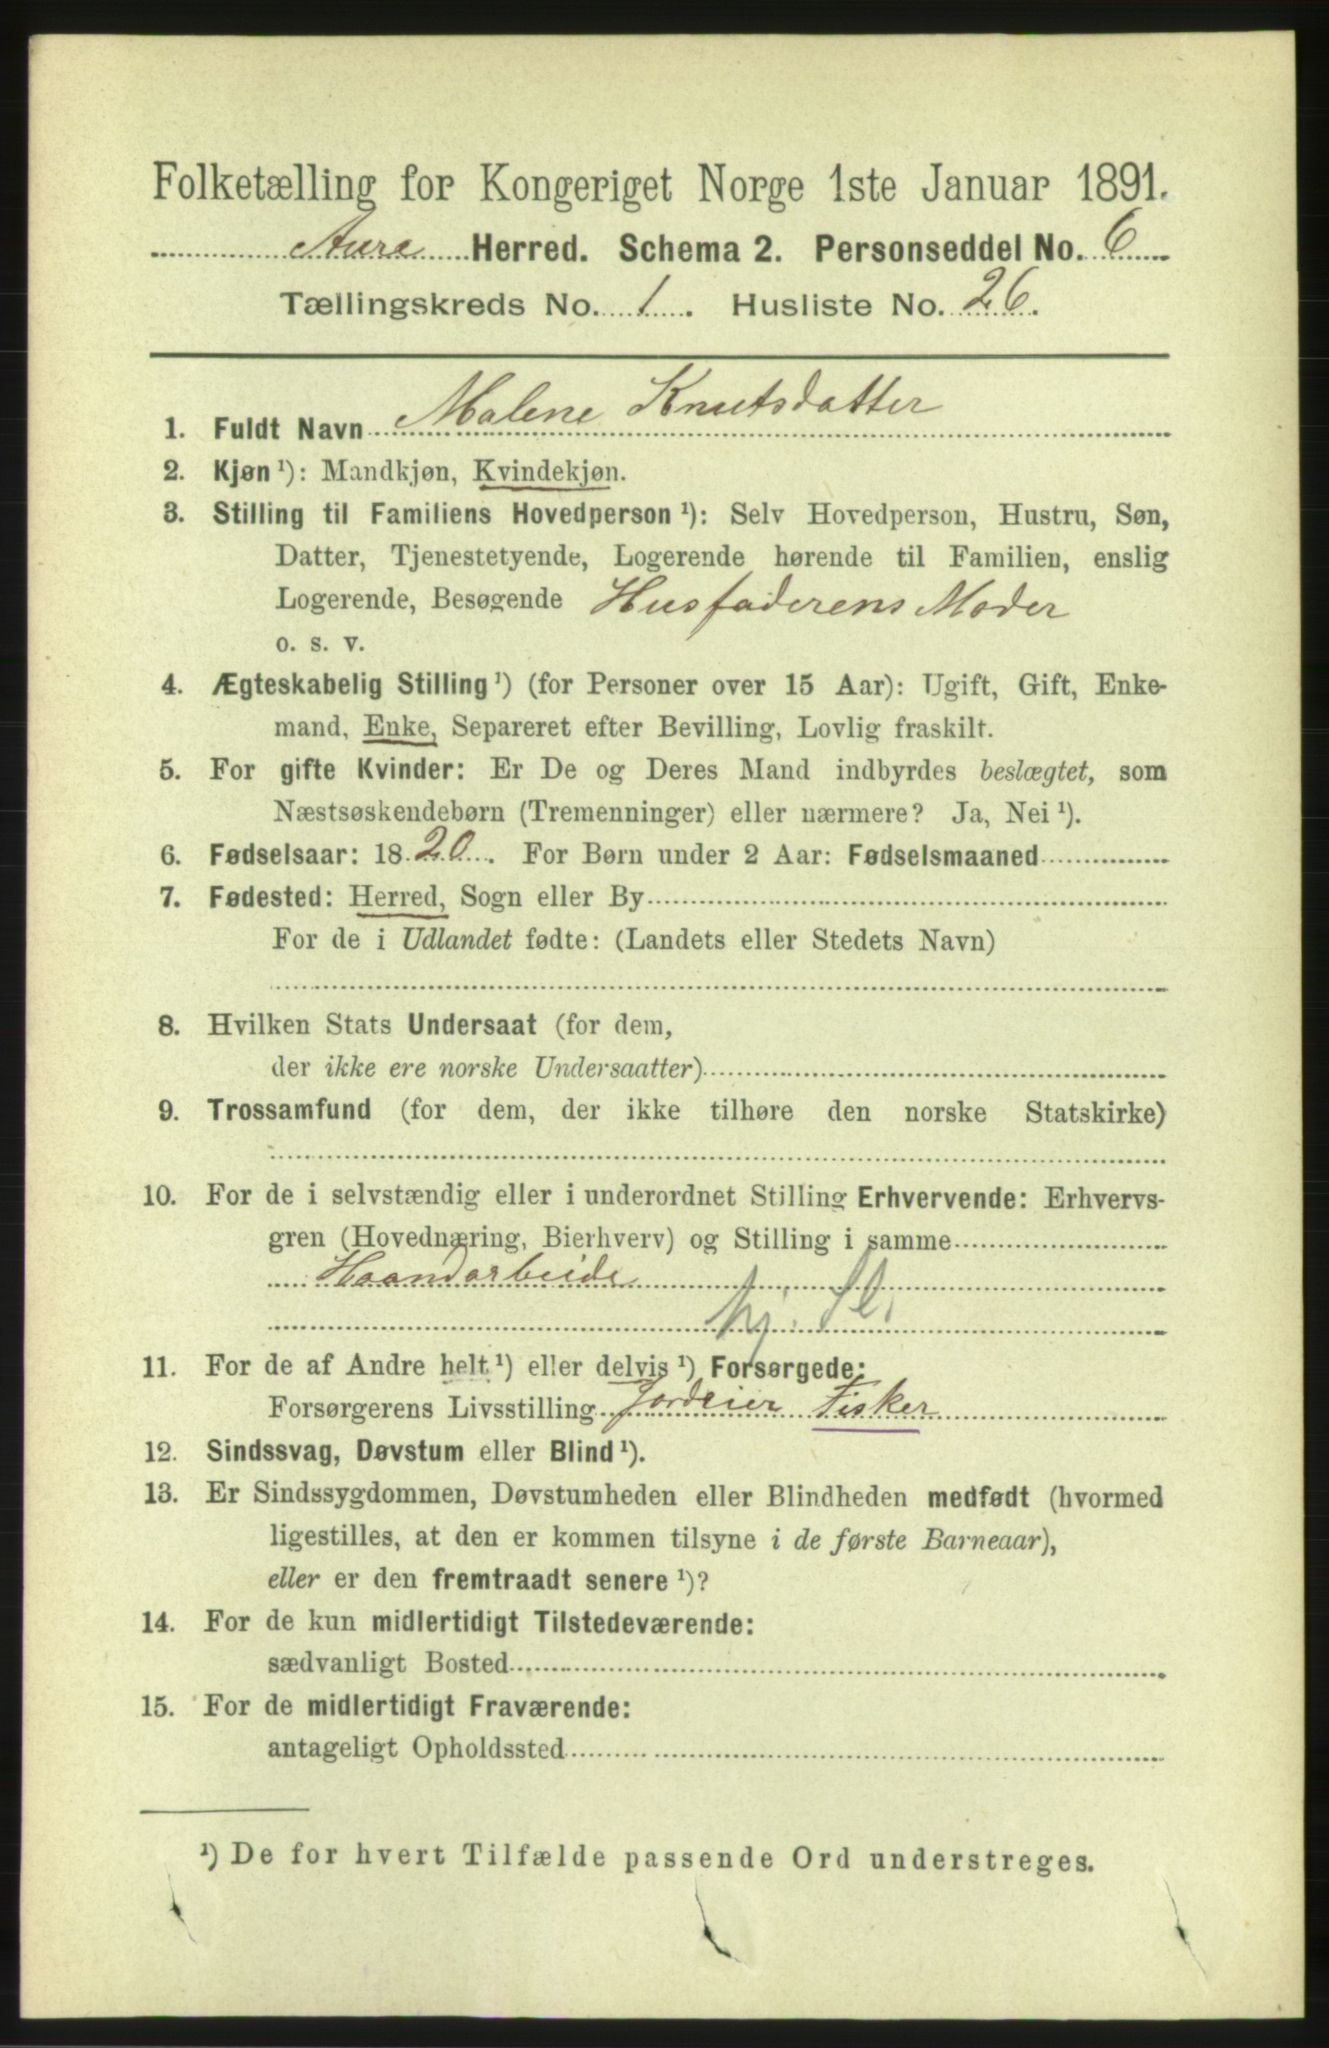 Folketælling for Kongeriget Norge 1ste Januar 1891.
Aure Herred. Schema 2. Personseddel No. 6
Tællingskreds No. 1. Husliste No. 26.
1. Fuldt Navn Malene Knutsdatter
2. Kjøn¹): Mandkjøn, Kvindekjøn.
3. Stilling til Familiens Hovedperson¹): Selv Hovedperson, Hustru, Søn,
Datter, Tjenestetyende, Logerende hørende til Familien, enslig
Logerende, Besøgende Husfaderens Moder
o. s. v.
4. Ægteskabelig Stilling¹) (for Personer over 15 Aar): Ugift, Gift, Enke-
mand, Enke, Separeret efter Bevilling, Lovlig fraskilt.
5. For gifte Kvinder: Er De og Deres Mand indbyrdes beslægtet, som
Næstsøskendebørn (Tremenninger) eller nærmere? Ja, Nei¹).
6. Fødselsaar: 1820. For Børn under 2 Aar: Fødselsmaaned
7. Fødested: Herred, Sogn eller By
For de i Udlandet fødte: (Landets eller Stedets Navn)
8. Hvilken Stats Undersaat (for dem,
der ikke ere norske Undersaatter)
9. Trossamfund (for dem, der ikke tilhøre den norske Statskirke)
10. For de i selvstændig eller i underordnet Stilling Erhvervende: Erhvervs-
gren (Hovednæring, Bierhverv) og Stilling i samme
Haandarbeide
11. For de af Andre helt¹) eller delvis¹) Forsørgede:
Forsørgerens Livsstilling Jordeier Fisker
12. Sindssvag, Døvstum eller Blind¹).
13. Er Sindssygdommen, Døvstumheden eller Blindheden medfødt (hvormed
ligestilles, at den er kommen tilsyne i de første Barneaar),
eller er den fremtraadt senere¹)?
14. For de kun midlertidigt Tilstedeværende:
sædvanligt Bosted
15. For de midlertidigt Fraværende:
antageligt Opholdssted
¹) De for hvert Tilfælde passende Ord understreges.